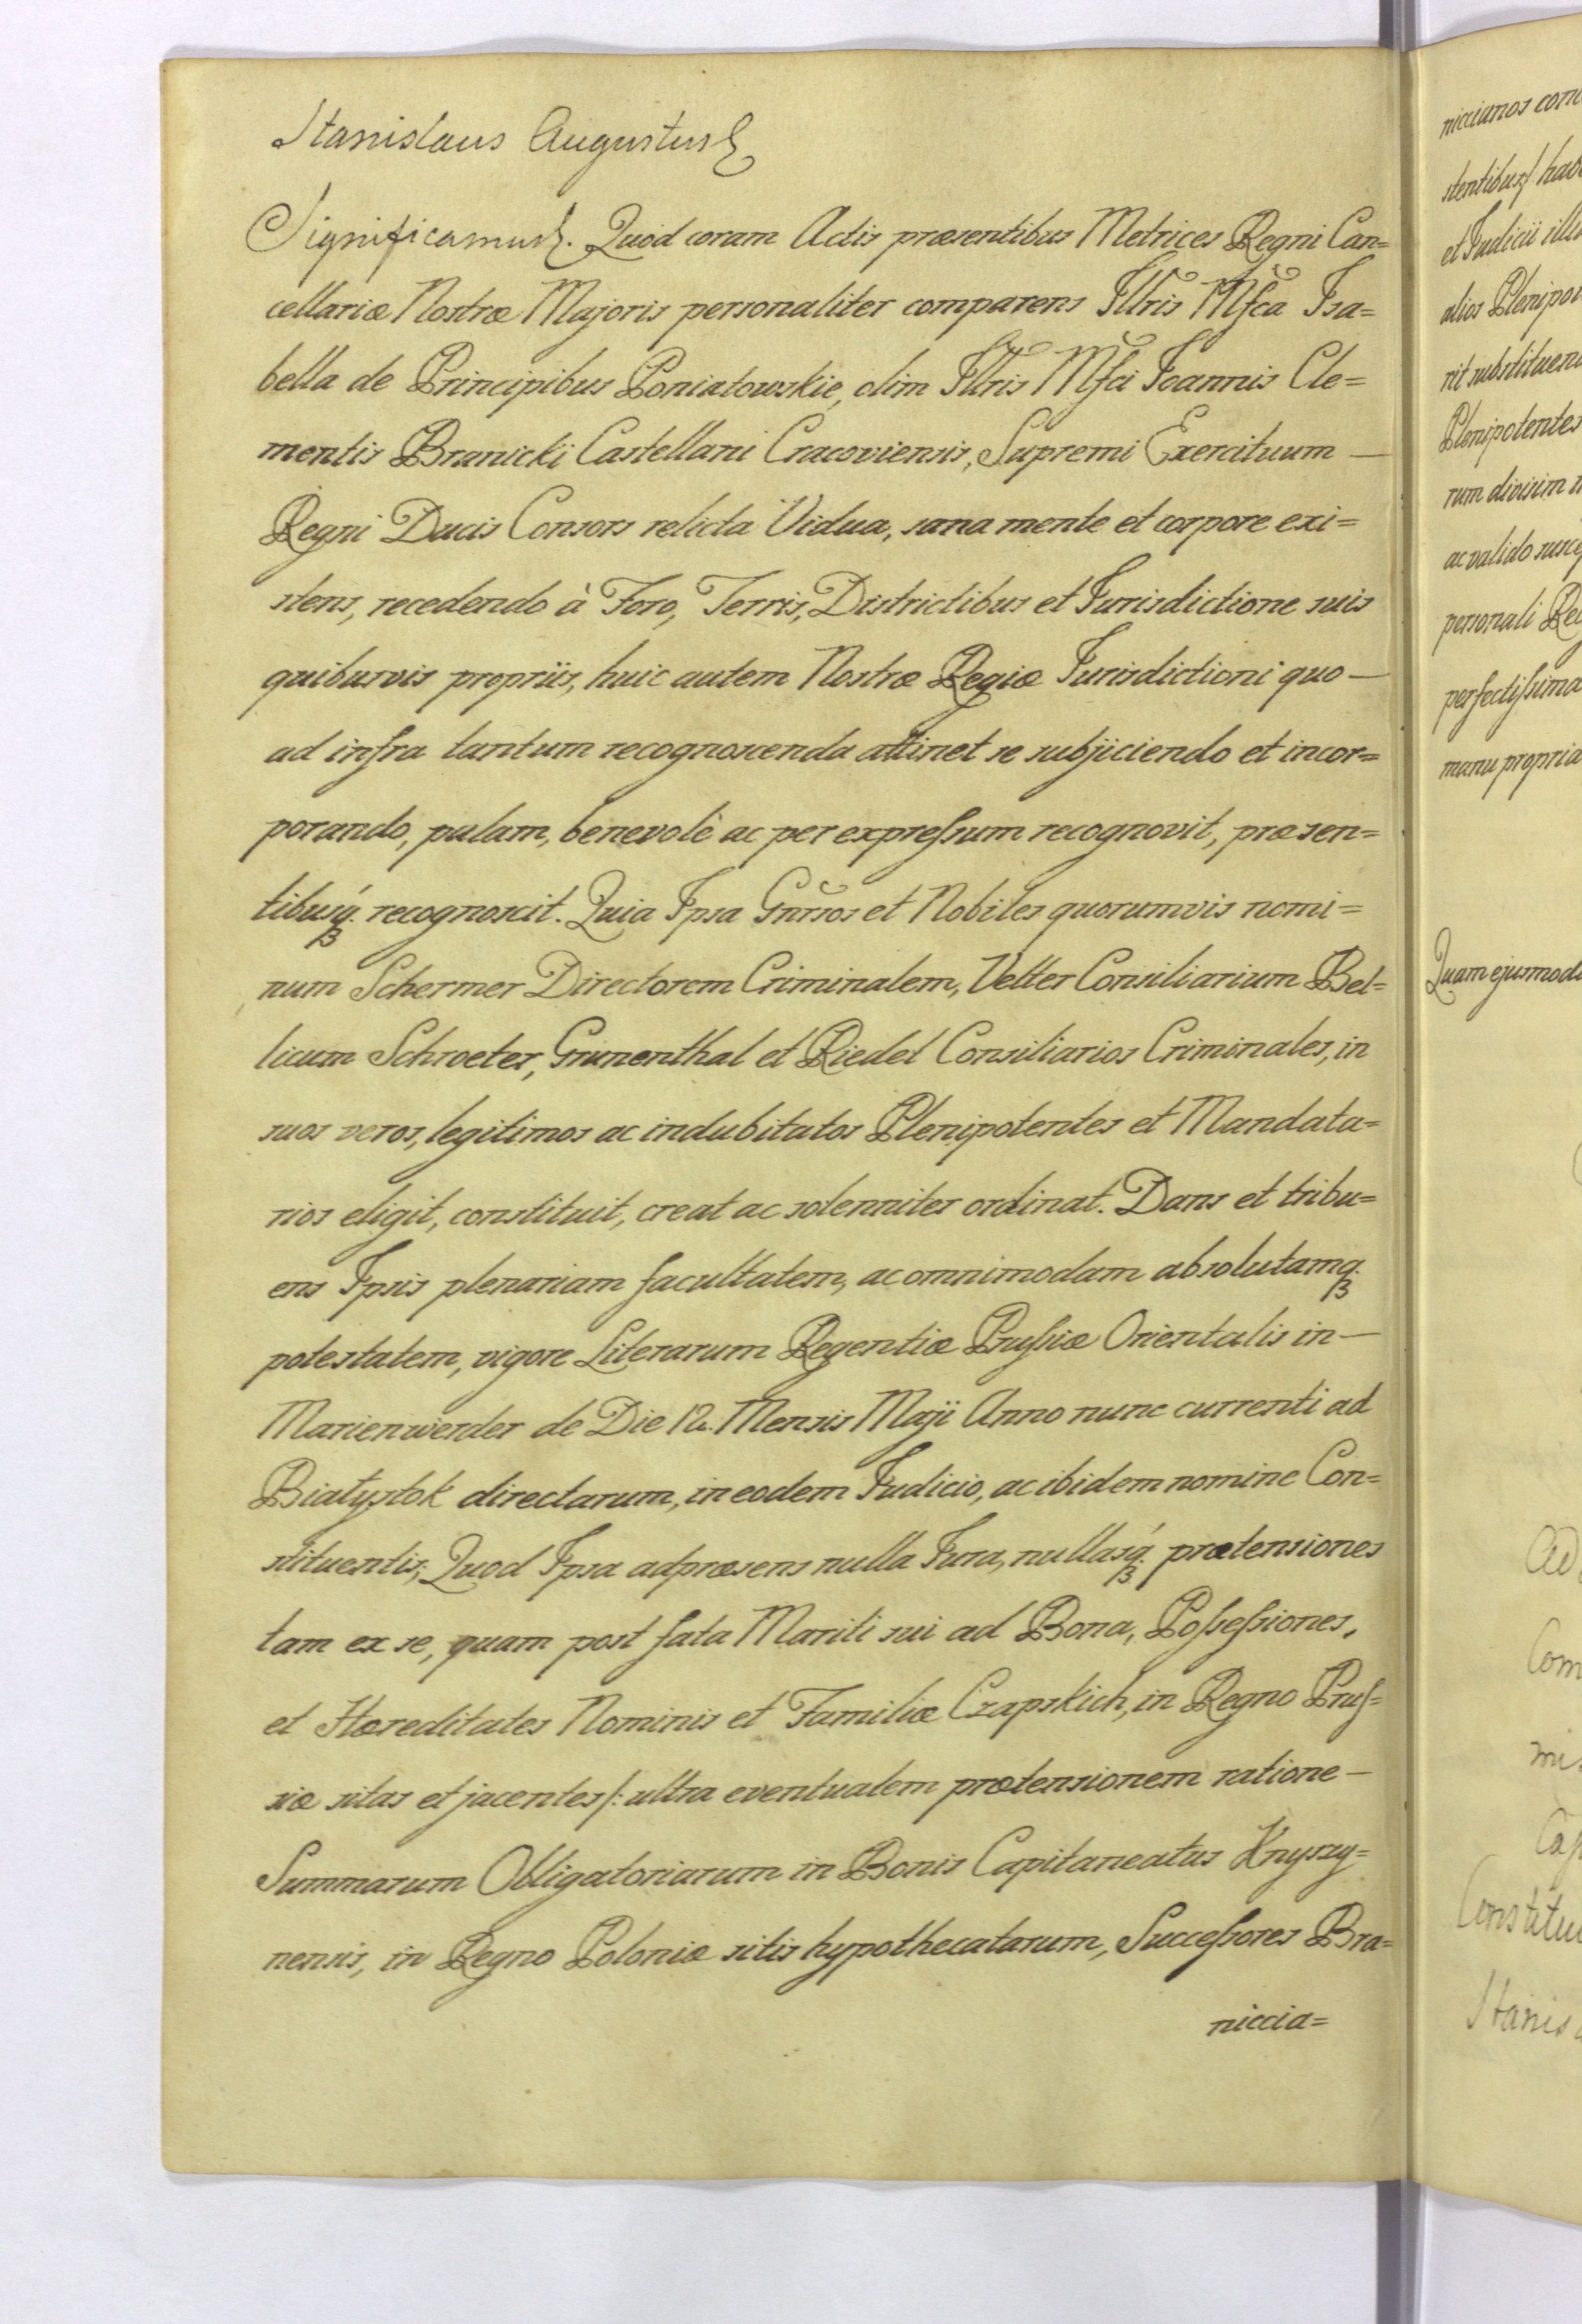 Stanislaus Augustus
Significamus. Quod coram Actis præsentibus Metrices Regni Can=
cellariæ Nostræ Majoris personaliter comparens Illris Mfca Isa=
bella de Principibus Poniatowskie, olim Illris Mfci Joannis Cle=
mentis Branicki Castellani Cracoviensis, Supremi Exercituum —
Regni Ducis Consors relicta Vidua, sana mente et corpore exi=
stens, recedendo à Foro, Terris, Districtibus et Jurisdictione suis
quibusvis propriis, huic autem Nostræ Regiæ Jurisdictioni quo —
ad infra tantum recognoscenda attinet se subjiciendo et incor=
porando, palam, benevolè ac per expreſsum recognovit, præsen=
tibusq. recognoscit. Quia Ipsa Gnrsos et Nobiles quorumvis nomi=
num Schermer Directorem Criminalem, Velter Consiliarium Bel=
licum Schroeter, Grunenthal et Riedel Consiliarios Criminales, in
suos veros, legitimos ac indubitatos Plenipotentes et Mandata=
rios eligit, constituit, creat ac solenniter ordinat. Dans et tribu=
ens Ipsis plenariam facultatem, ac omnimodam absolutamq.
potestatem, vigore Literarum Regentiæ Pruſsiæ Orientalis in —
Marienwerder de Die 12. Mensis Maji Anno nunc currenti ad
Białystok directarum, in eodem Judicio, ac ibidem nomine Con=
stituentis; Quod Ipsa adpræsens nulla Jura, nullasq. prætensiones
tam ex se, quam post fata Mariti sui ad Bona, Poſseſsiones,
et Hæreditates Nominis et Familiæ Czapskich, in Regno Pruſ=
siæ sitas et jacentes /: ultra eventualem prætensionem ratione —
Summarum Obligatoriarum in Bonis Capitaneatus Knyszy=
nensis, in Regno Poloniæ sitis hypothecatarum, Succeſsores Bra=
niccia=
niccianos
et Judicii
alios
Plenipotentes
rum divisim
ac valido
personali
perfectiſsima
manu propria
Quam